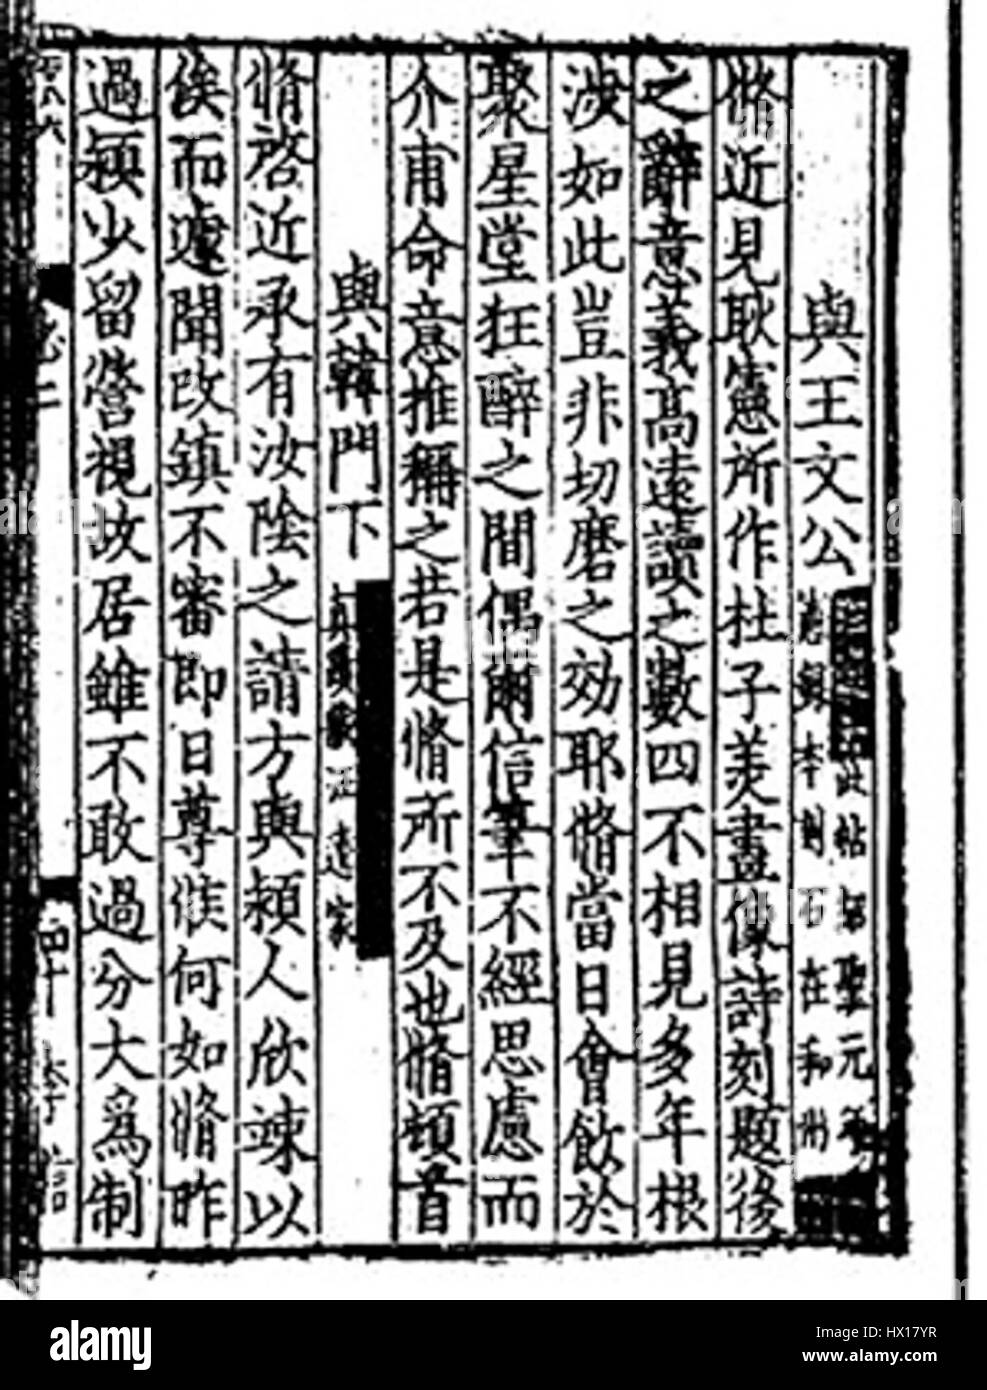 與王文公
此帖 聖元
本刻石在和州
脩近見耿憲所作杜子美畫像詩刻題後
之辭意義高遠讀之數四不相見多年根
如此豈非切磨之効耶脩當日會飲於
聚星堂狂醉之間偶爾信筆不經思慮而
介甫命意推稱之若是脩所不及也脩頓首
與韓門下
真蹟 遠家
脩啓近承有汝陰之請方與潁人欣竦以
俟而遽聞改鎮不審即日尊候何如脩昨
過潁少留營視故居雖不敢過分大爲制
四十
alamy
Image ID: HX17YR
www.alamy.com